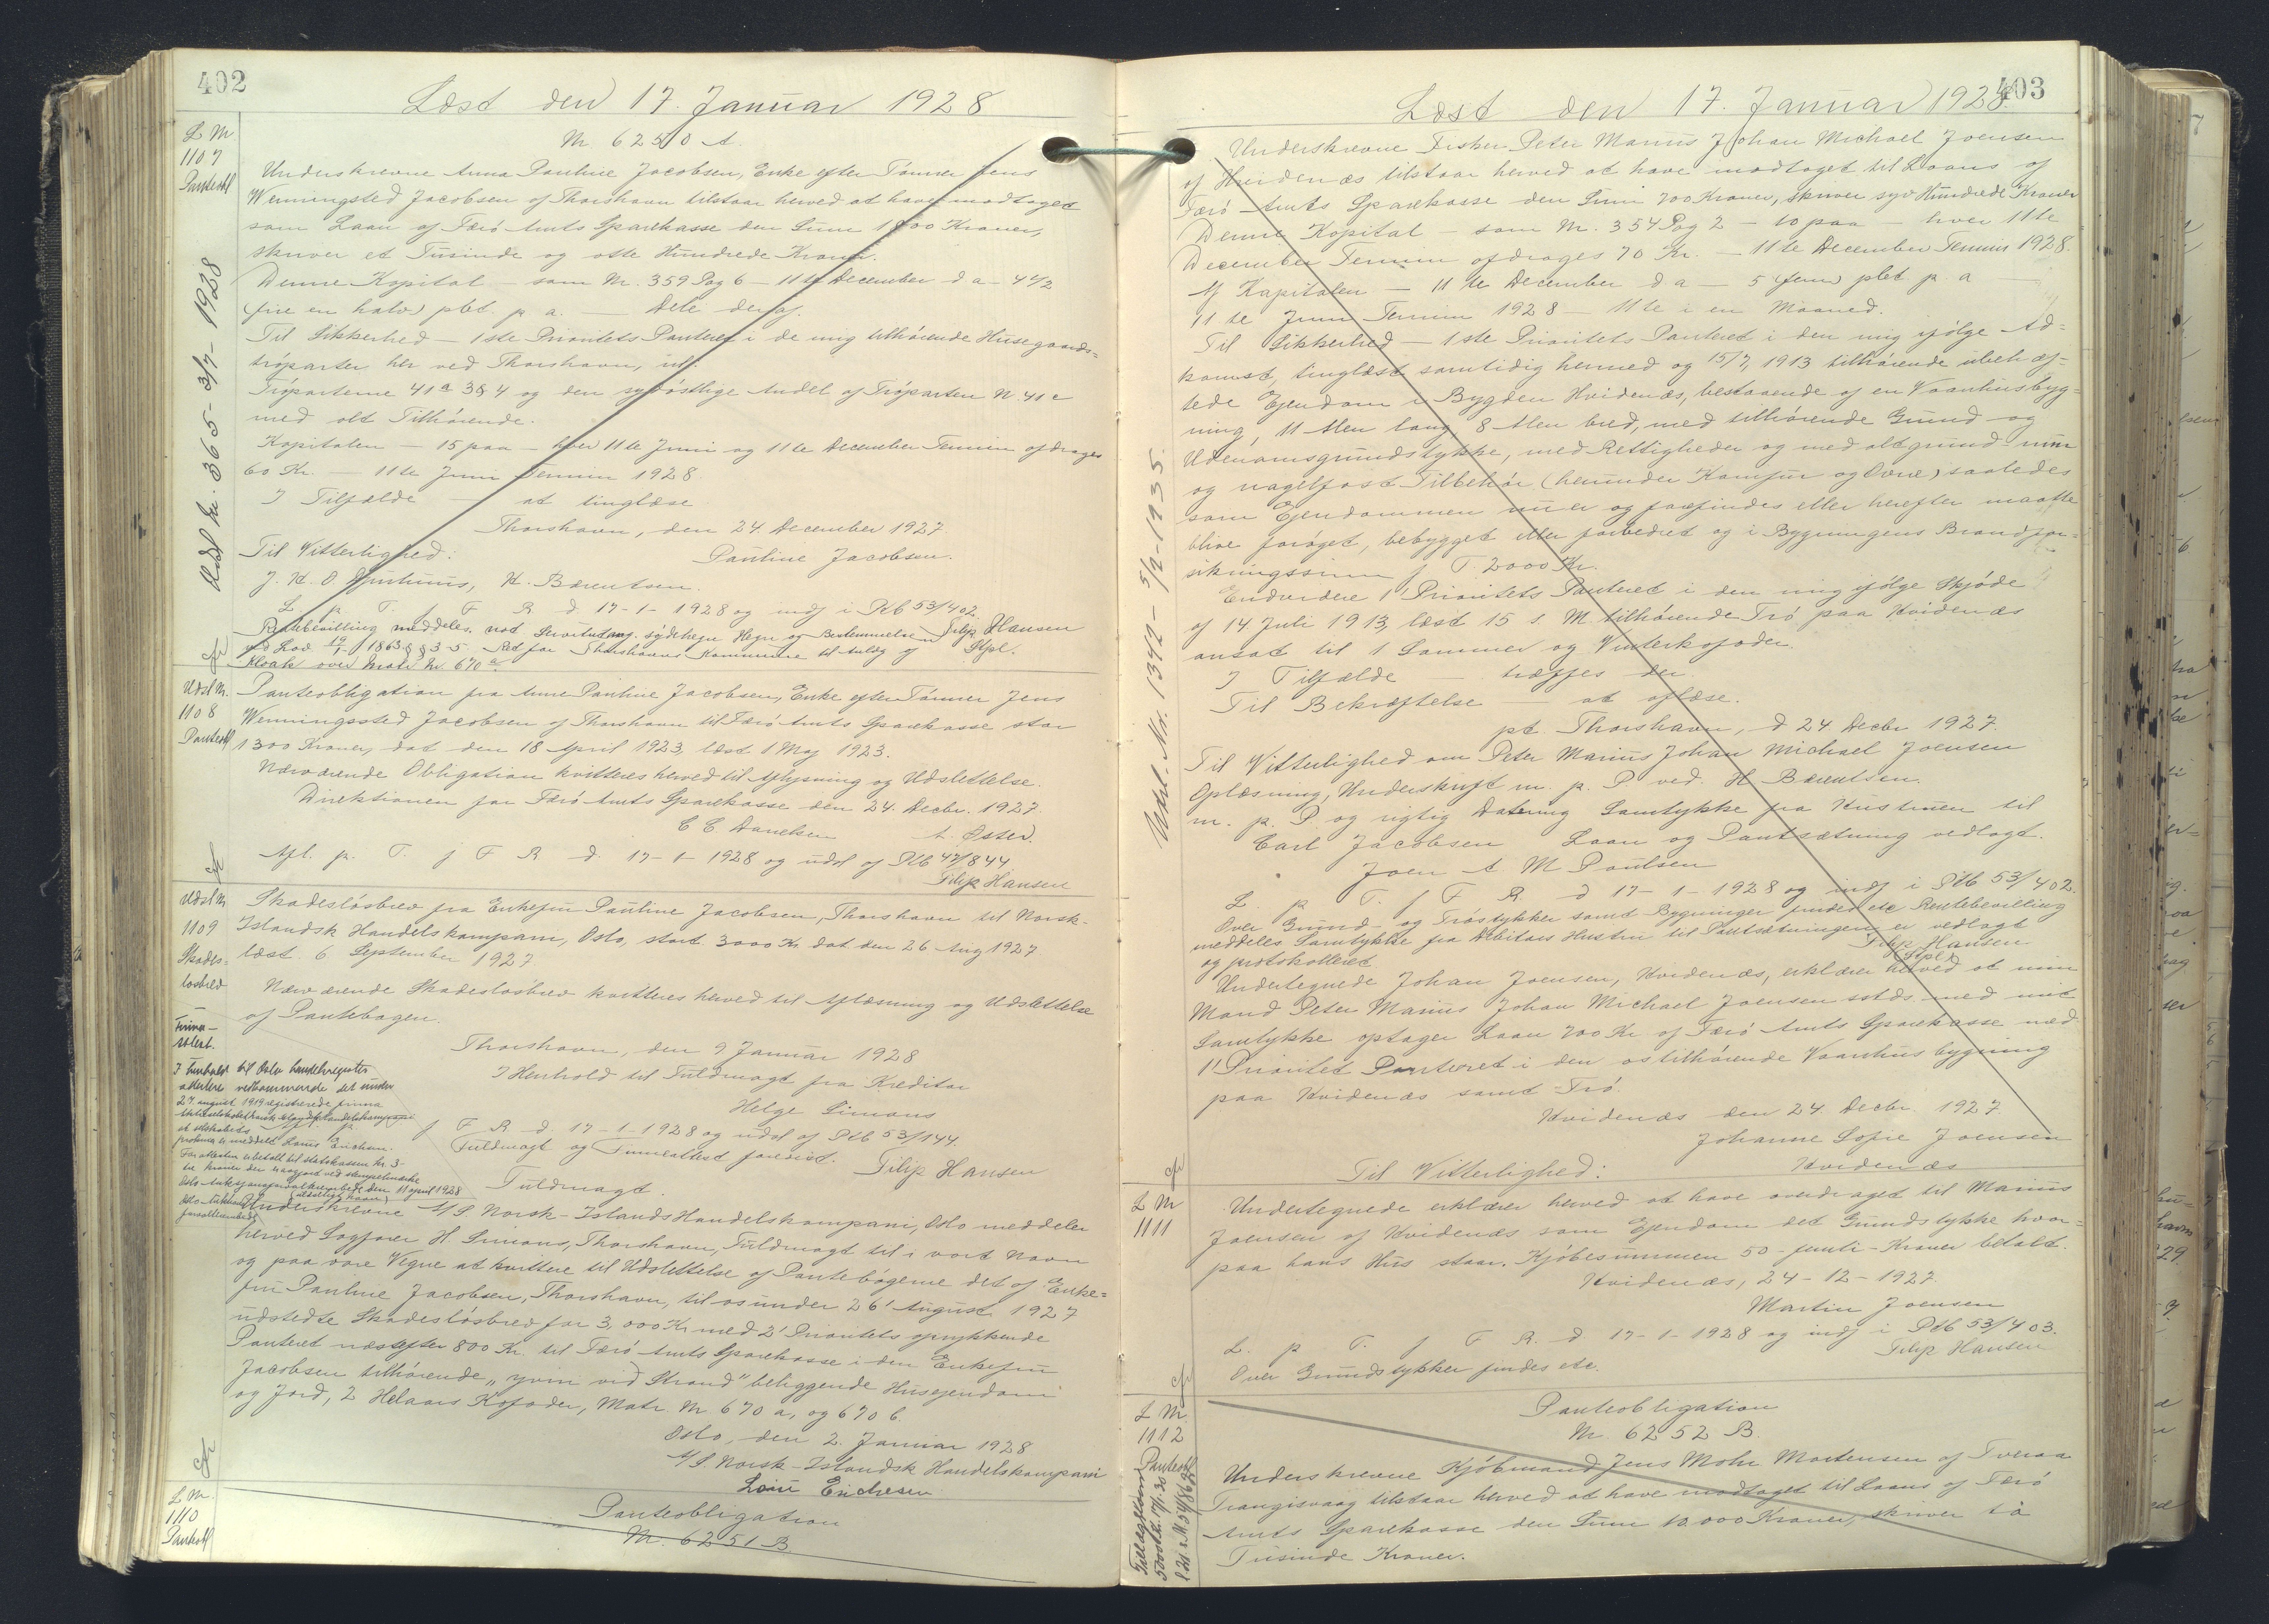 402
Læst den 17. Januar 1928
L M
1107
Panteobl
Nr 6250 A.
Underskrevne Anna Pauline Jacobsen, Enke efter Tømrer Jens
Wenningsted Jacobsen af Thorshavn tilstaar herved at have modtaget
som Laan af Færø Amts Sparekasse den Sum 1800 Kroner,
skriver et Tusinde og otte Hundrede Kroner.
Denne Kapital — som Nr. 359 Pag 6 — 11te December d a — 4 1/2
(fire en halv) pCt. p. a. — Dele deraf.
Til Sikkerhed — 1ste Prioritets Panteret i de mig tilhørende Husegaards-
trøparter her ved Thorshavn,
Trøparterne 41a 3&4 og den sydøstlige Andel af Trøparten N 41c
med alt Tilhørende.
Kapitalen — 15 paa — hver 11te Juni og 11te December Termin afdrages
60 Kr. — 11te Juni Termin 1928.
I Tilfælde — at tinglæse.
Thorshavn, den 24. December 1927
Til Vitterlighed: Pauline Jacobsen.
H. Bærentsen.
L. p. T. f F R d 17-1-1928 og indf i Pkb 53/402.
Rentebevilling meddeles. Filip Hansen
Kloak over Matr Nr 670a
Udsl Nr. 365 - 3/7 - 1928
Udsl Nr.
1108
Panteobl
Panteobligation fra Anna Pauline Jacobsen, Enke efter Tømrer Jens
Wenningssted Jacobsen af Thorshavn til Færø Amts Sparekasse stor
1300 Kroner, dat den 18 April 1923, læst 1 Maj 1923.
Nærværende Obligation kvitteres herved til Aflysning og Udslettelse.
Direktionen for Færø Amts Sparekasse den 24. Decbr. 1927.
C C Danielsen A. Øster.
Afl. p. T. f F R d. 17-1-1928 og udsl af Pkb 47/844
Filip Hansen
Udsl Nr
1109
Skades-
løsbrev
Skadesløsbrev fra Enkefru Pauline Jacobsen, Thorshavn til Norsk-
Islandsk Handelskompani, Oslo, stort 3000 Kr dat den 26 Aug 1927
læst 6 September 1927
Nærværende Skadesløsbrev kvitteres herved til Aflæsning og Udslettelse
af Pantebogen.
Thorshavn, den 9 Januar 1928
I Henhold til Fuldmagt fra Kreditor
Helge Simons
f F R d. 17-1-1928 og udsl af Pkb 53/144.
Fuldmagt og Firmaattest forevist. Filip Hansen
Firma-
attest.
I henhold til Oslo handelsregister
attesteres vedkommende det under
27. august 1919 registrerede firma
er meddelt Louis Erichsen.
For attesten er betalt til statskassen kr. 3-
tre kroner den er avgjord ved stempelmerke
den 11 april 1928
Fuldmagt.
Underskrevne A/S. Norsk-Islands Handelskompani, Oslo meddeler
herved Sagfører H. Simons, Thorshavn, Fuldmagt til i vort Navn
og paa vore Vegne at kvittere til Udslettelse af Pantebøgerne det af Enke-
fru Pauline Jacobsen, Thorshavn, til os under 26' August 1927
udstedte Skadesløsbrev for 3,000 Kr med 2' Prioritets oprykkende
Panteret næstefter 800 Kr. til Færø Amts Sparekasse i den Enkefru
Jacobsen tilhørende „yvir við Strond" beliggende Husejendom
og Jord, 2 Helaars Kofoder, Matr. Nr 670 a, og 670 b.
Oslo, den 2. Januar 1928
A/S. Norsk-Islandsk Handelskompani
Louis Erichsen
L Nr.
1110
Panteobl
Panteobligation
Nr. 6251 B
403
Læst den 17. Januar 1928
Underskrevne Fisker Peter Marius Johan Michael Joensen
af Hvidenæs tilstaar herved at have modtaget til Laans af
Færø Amts Sparekasse den Sum 700 Kroner, skriver syv Hundrede Kroner
Denne Kapital — som Nr. 354 Pag 2 — 10 paa hver 11te
December Termin afdrages 70 Kr. — 11te December Termin 1928.
Af Kapitalen — 11te December d a — 5 (fem) pCt p. a —
11te Juni Termin 1928 — 11te i en Maaned.
Til Sikkerhed — 1ste Prioritets Panteret i den mig ifølge Ad-
komst, tinglæst samtidig hermed og 15/7 1913 tilhørende ubehæf-
tede Ejendom i Bygden Hvidenæs, bestaaende af en Vaanhusbyg-
ning, 11 Alen lang, 8 Alen bred, med tilhørende Grund og
Udenomsgrundstykke, med Rettigheder og med alt grund- mur
og nagelfast Tilbehør (herunder Komfur og Ovne) saaledes
som Ejendommen nu er og forefindes eller herefter maatte
blive forøget, bebygget eller forbedret og i Bygningens Brandfor-
sikringssum f. T. 2000 Kr.
Endvidere 1' Prioritets Panteret i den mig ifølge Skjøde
af 14 Juli 1913, læst 15 s. M. tilhørende Trø paa Hvidenæs
ansat til 1 Sommer og Vinterkofoder.
I Tilfælde — træffes der
Til Bekræftelse — at aflæse.
pt. Thorshavn, d 24 Decbr 1927.
Til Vitterlighed om Peter Marius Johan Michael Joensen
Oplæsning, Underskrift m. p. P ved. H Bærentsen.
m. p. P. og rigtig Datering Samtykke fra Hustruen til
Carl Jacobsen Laan og Pantsætning vedlagt.
Joen A M Poulsen
L. p T. f F R. d 17-1-1928 og indf i Pkb 53/402.
Over Grund- og Trøstykker samt Bygninger findes etc Rentebevilling
meddeles Samtykke fra Debitors Hustru til Pantsætningen er vedlagt
og protokolleret Filip Hansen
Undertegnede Johan Joensen, Hvidenæs, erklærer herved at min
Mand Peter Marius Johan Michael Joensen sstds. med mit
Samtykke optager Laan 700 Kr af Færø Amts Sparekasse mod
1' Prioritet Panteret i den os tilhørende Vaanhusbygning
paa Hvidenæs samt Trø.
Hvidenæs den 24. Decbr 1927.
Johanne Sofie Joensen
Hvidenæs
Til Vitterlighed:
Udsl. Nr. 1342 - 5/2-1935.
L Nr
1111
Undertegnede erklærer herved at have overdraget til Marius
Joensen af Hvidenæs som Ejendom det Grundstykke hvor-
paa hans Hus staar. Kjøbesummen 50 - femti - Kroner betalt.
Hvidenæs, 24-12-1927.
Martin Joensen
L. p T. f F R. d 17-1-1928 og indf i Pkb 53/403.
Over Grundstykker findes etc. Filip Hansen
L Nr
1112
Panteobl
Panteobligation
Nr. 6252 B
Underskrevne Kjøbmand Jens Mohr Mortensen af Tveraa
Trangisvaag tilstaar herved at have modtaget til Laans af Færø
Amts Sparekasse den Sum 10.000 Kroner, skriver ti
Tusinde Kroner.